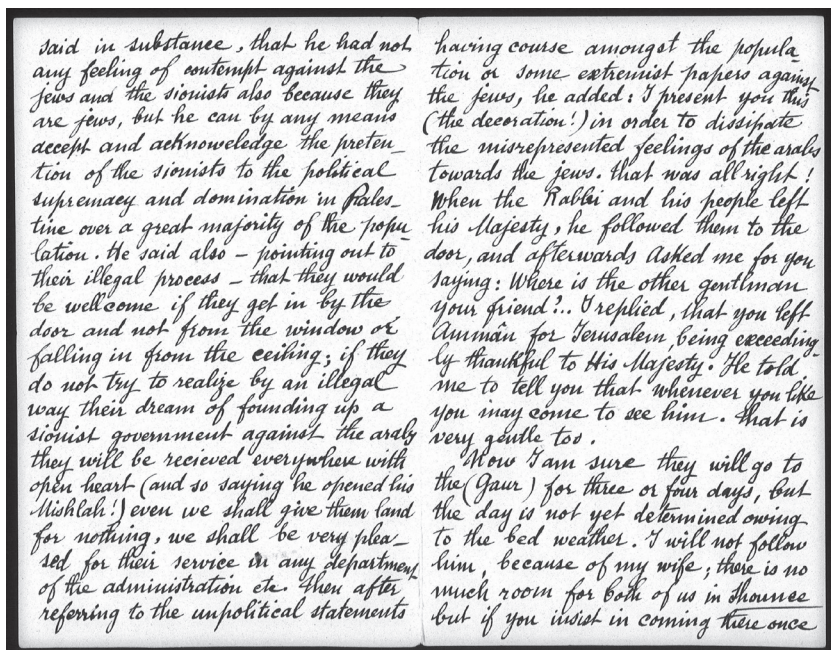 said in substance, that he had not
any feeling of contempt against the
jews and the sionists also because they
are jews, but he can by any means
accept and acknoweledge the preten_
tion of the sionists to the political
supremacy and domination in Pales_
tine over a great majority of the popu_
lation. He said also - pointing out to
their illegal process - that they would
be wellcome if they get in by the
door and not from the window or
falling in from the ceiling; if they
do not try to realize by an illegal
way their dream of founding up a
sionist government against the arabs
they will be recieved everywhere with
open heart (and so saying he opened his
Mishlah!) even we shall give them land
for nothing, we shall be very plea_
sed for their service in any department
of the administration etc. Then after
referring to the unpolitical statements
having course amongst the popula_
tion or some extremist papers against
the jews, he added: I present you this
(the decoration!) in order to dissipate
the misrepresented feelings of the arabs
towards the jews. That was all right!
When the Rabbi and his people left
his Majesty, he followed them to the
door, and afterwards asked me for you
saying: Where is the other gentlman
your friend?.. I replied, that you left
Ammân for Jerusalem, being exceeding_
ly thankful to His Majesty. He told
me to tell you that whenever you like
you may come to see him. That is
very gentle too.
Now I am sure they will go to
the (Gaur) for three or four days, but
the day is not yet determined owing
to the bed weather. I will not follow
him, because of my wife; there is no
much room for both of us in Shounee
but if you insist in coming there once